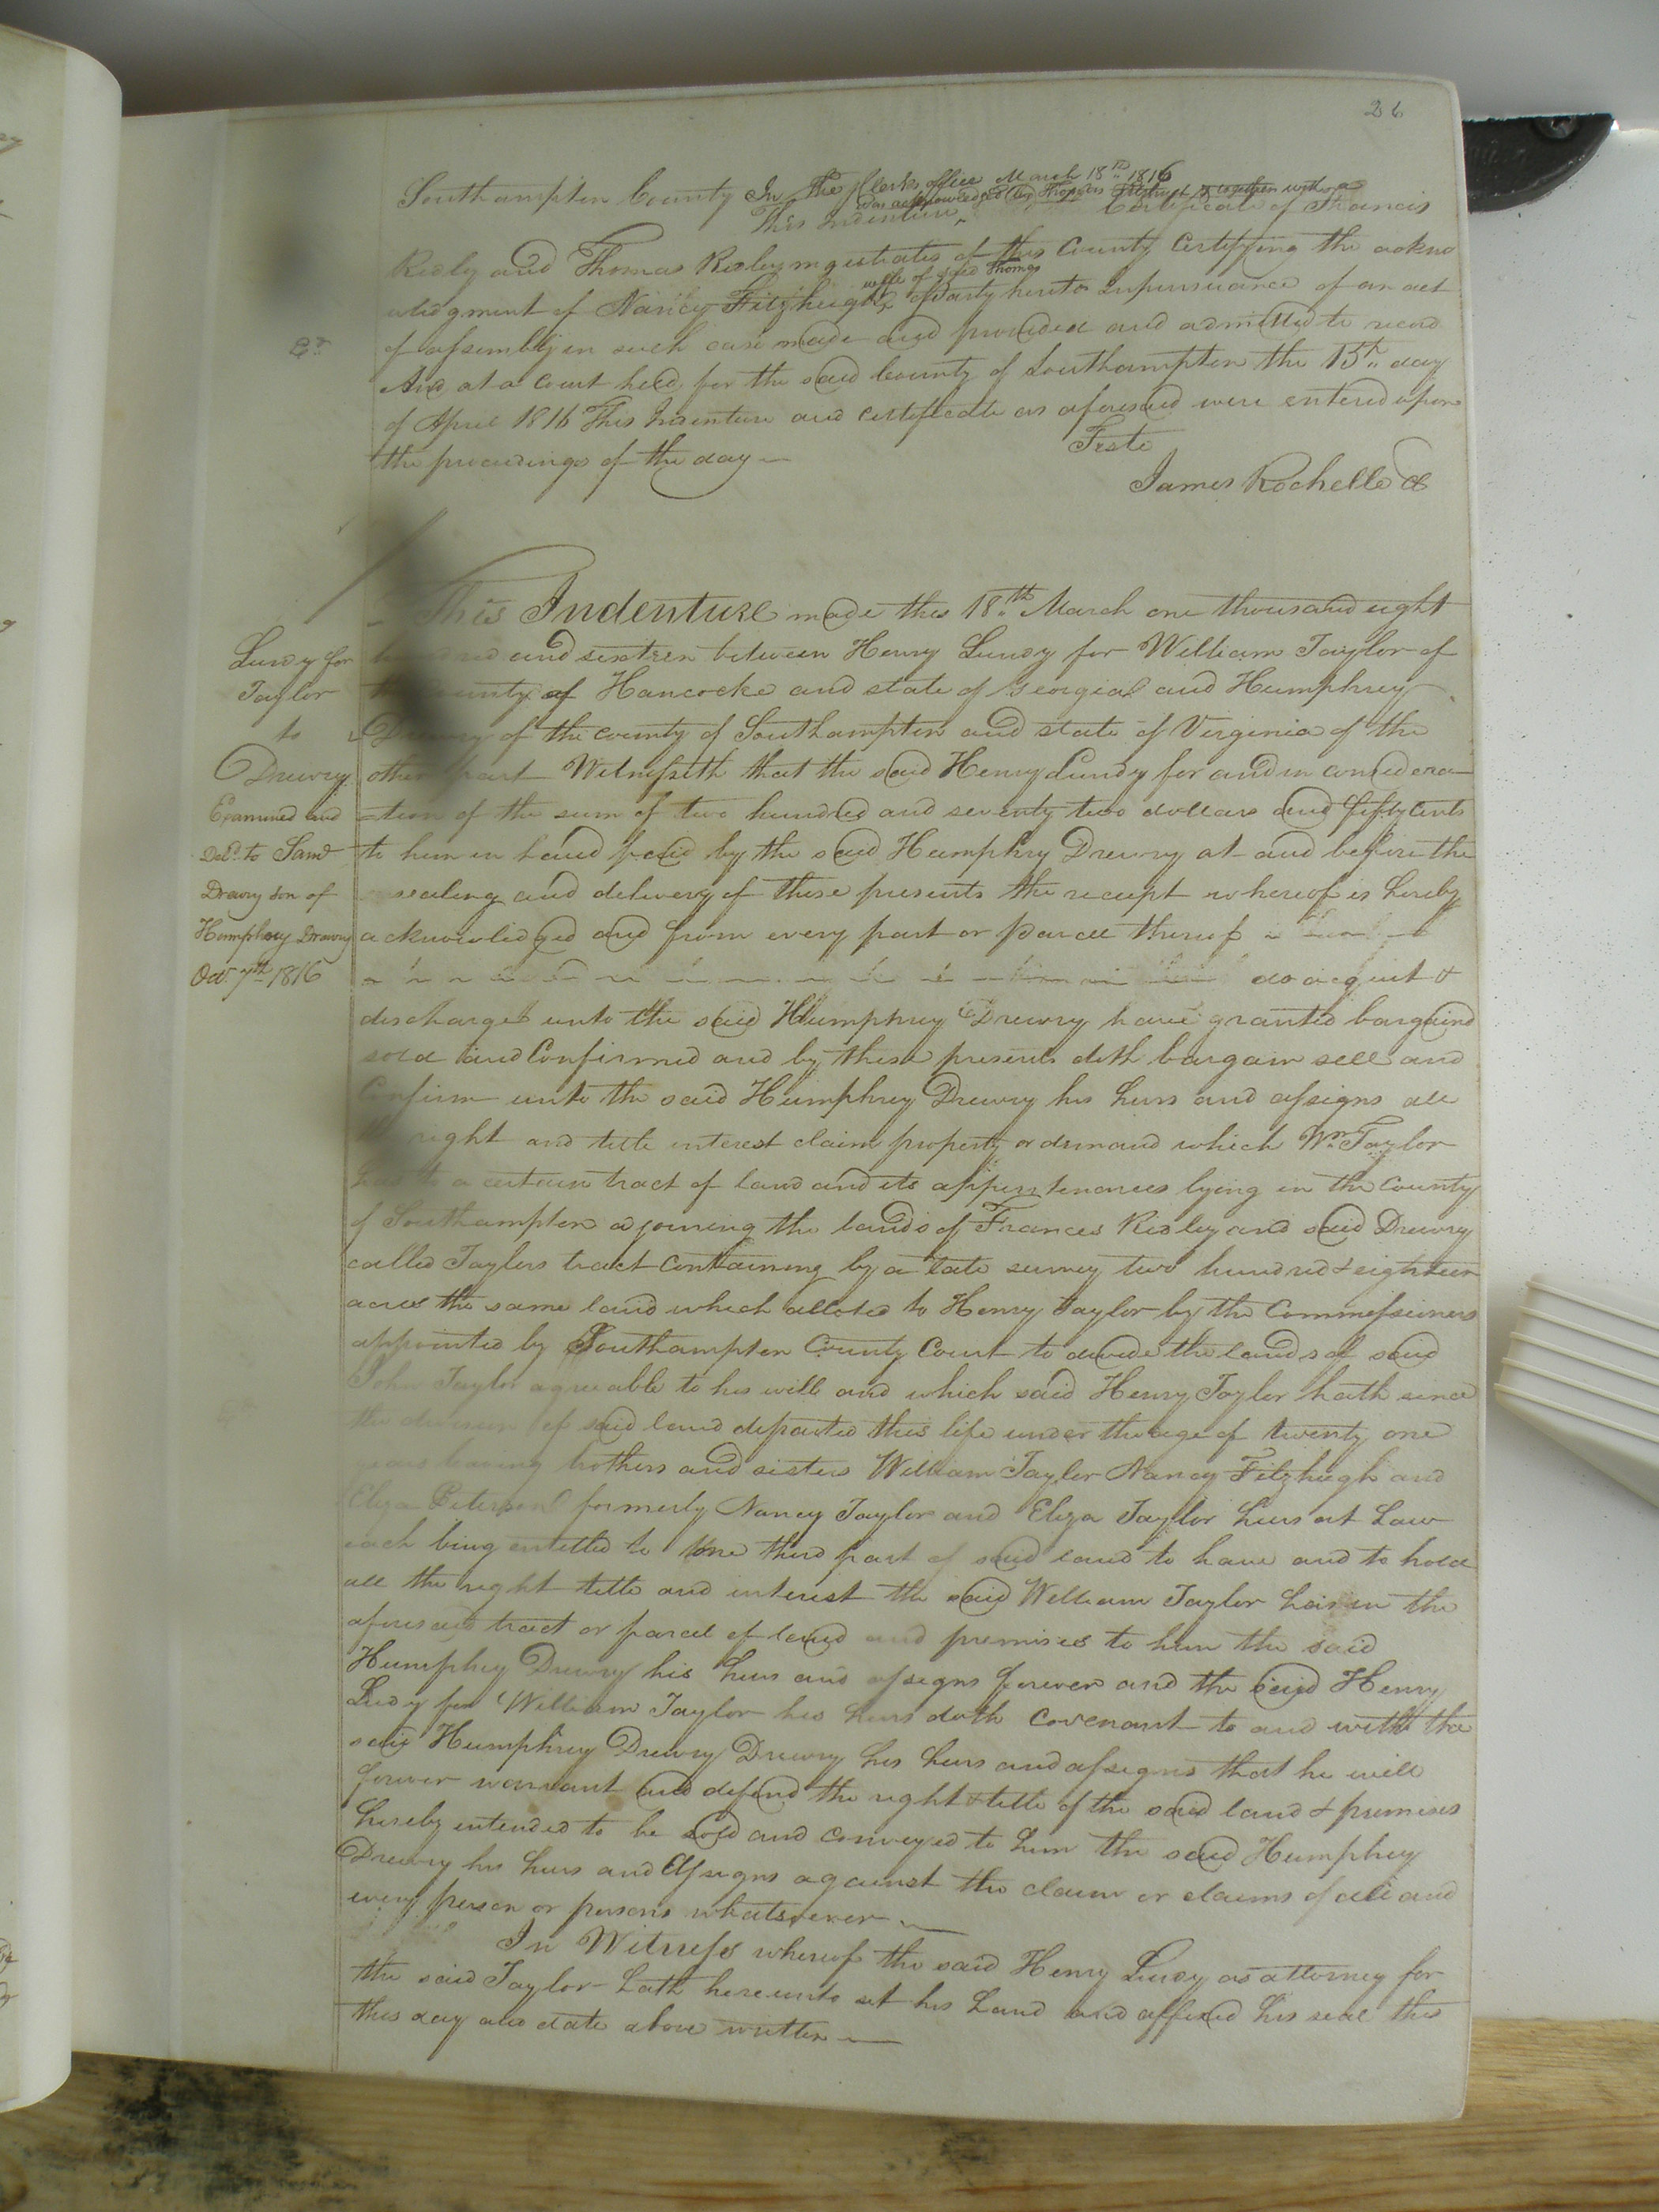 26
Southampton County In the Clerks office March 18th 1816
This Indenture was acknowledged by Thomas Fitzhugh & together with a Certificate of Francis
Ridley and Thomas Ridley mgestrates of this County Certifying the ackno
wledgment of Nancy Fitzheigh wife of said Thomas party hereto inpursuance of an act
of assembly in such case made and provided and admitted to record
And at a Court held for the said County of Southampton the 15th day
of April 1816 This Indenture and certificate as aforesaid were entered upon
the proceedings of the day
Teste
James Rochelle
This Indenture made this 18th March one thousand eight
hundred and sixteen between Henry Lundy for William Taylor of
the County of Hancocke and state of Georgia and Humphrey
Drewry of the county of Southampton and state of Virginia of the
other part Witnesseth that the said Henry Lundy for and in considera
-tion of the sum of two hundred and seventy two dollars and fifty cents
to him in hand paid by the said Humphry Drewry at and before the
sealing and delivery of these presents the receipt whereof is hereby
acknowledged and from every part or parcel thereof
do acquit &
discharge unto the said Humphrey Drewry have granted bargaind
sold and Confirmed and by these presents doth bargain sell and
Confirm unto the said Humphrey Drewry his heirs and assigns all
right and title interest claim property or demand which Wm Taylor
has to a certain tract of land and its appurtenances lying in the County
of Southampton ajoining the lands of Frances Ridley and said Drewry
called Taylors tract containing by a late survey two hundred & eighteen
acres the same land which alloted to Henry Taylor by the Commessioners
appointed by Southampton County Court to devide the lands of said
John Taylor agreeable to his will and which said Henry Taylor hath since
the division of said land departed this life under the age of twenty one
years leaving brothers and sisters William Taylor Nancy Fitzhugh and
Eliza Peterson formerly Nancy Taylor and Eliza Taylor heirs at Law
each being entitled to one third part of said land to have and to hold
all the right title and interest the said William Taylor has in the
aforesaid tract or parcel of land and premises to him the said
Humphrey Drewry his heirs and assigns forever and the said Henry
Ludy for William Taylor his heirs doth covenant to and with the
said Humphrey Drewry Drewry his heirs and assigns that he will
forever warrant and defend the right & title of the said land & premises
hereby intended to be sold and conveyed to him the said Humphrey
Drewry his heirs and assigns against the claim or claims of all and
every person or persons whatsoever
In Witness whereof the said Henry Lundy as attorney for
the said Taylor hath hereunto set his hand and affixed his seal this
this day and date above written
Lundy for
Taylor
to
Drewry
Examined and
Deld to Saml
Drewry son of
Humphrey Drewry
Oct 7th 1816